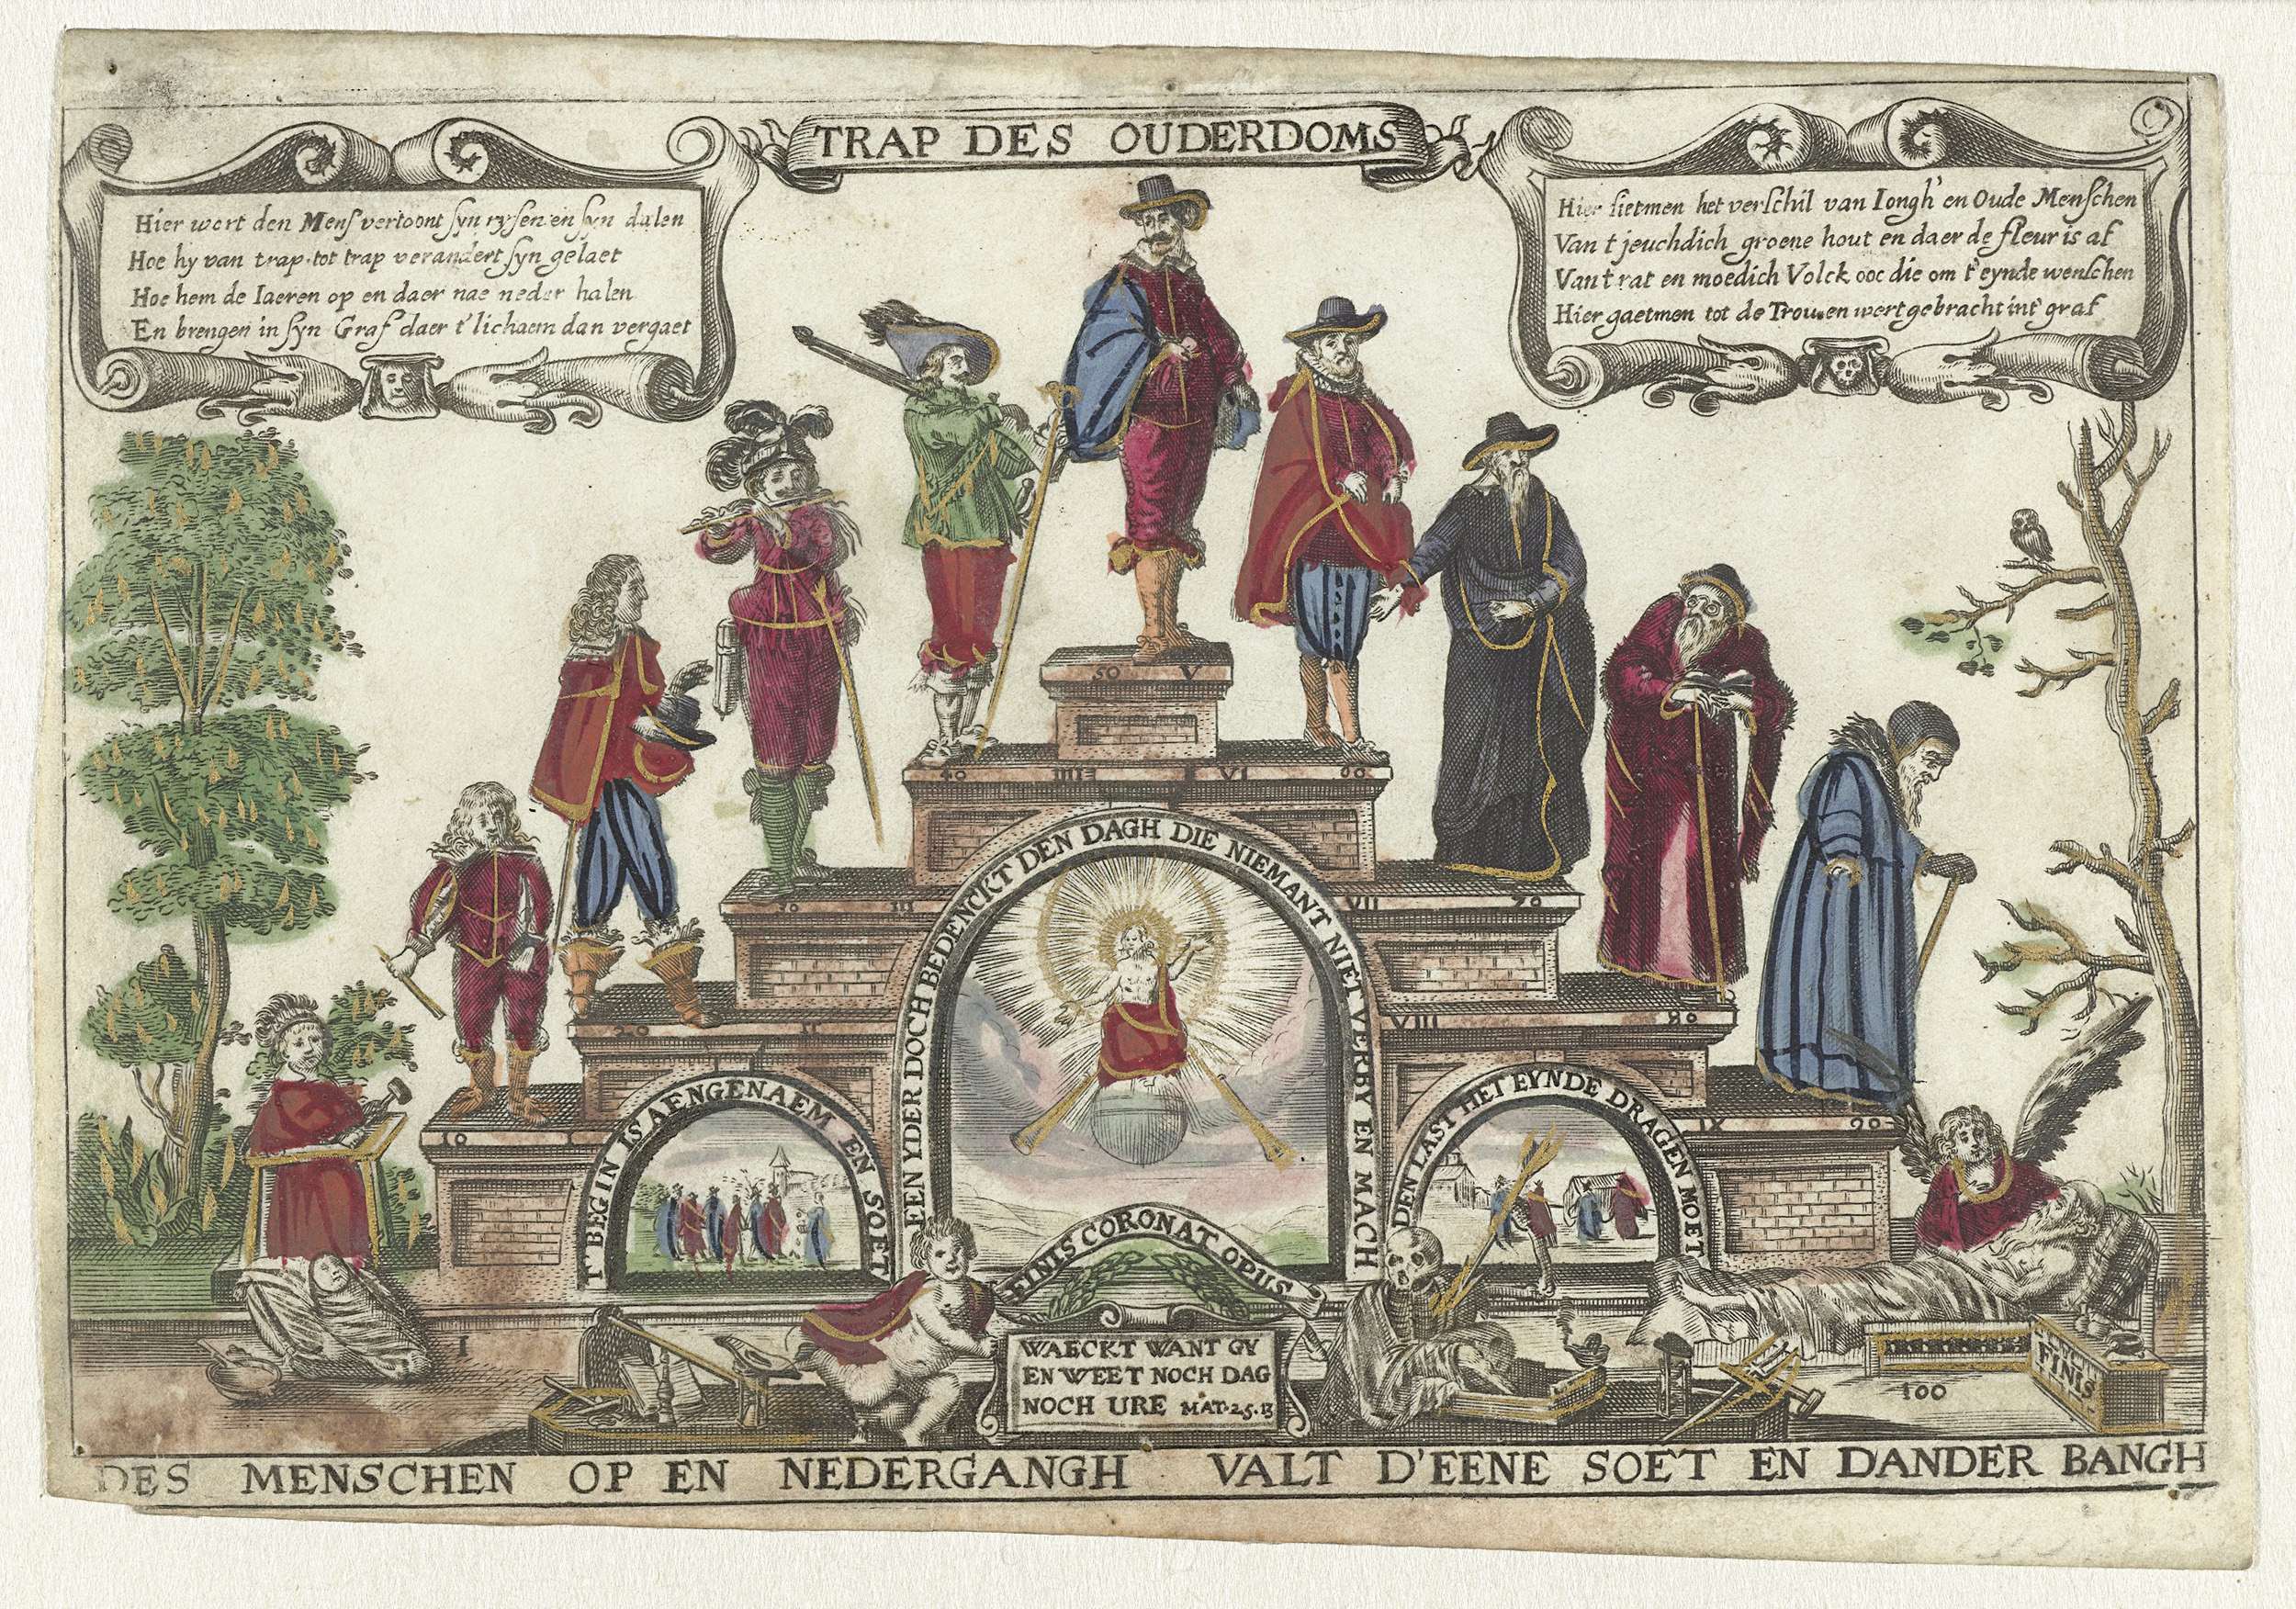 TRAP DES OUDERDOMS
Hier wort den Mens vertoont syn rysen en syn dalen
Hoe hy van trap tot trap verandert syn gelaet
Hoe hem de Iaeren op en daer nae neder halen
En brengen in syn Graf daer t'lichaem dan vergaet
Hier sietmen het verschil van Iongh' en Oude Menschen
Van t jeuchdich groene hout en daer de fleur is af
Van t rat en moedich Volck ooc die om t'eynde wenschen
Hier gaetmen tot de Trou en wert gebracht int' graf
50 V
40 IIII VI 60
30 III VII 70
20 II VIII 80
10 IX 90
EEN YDER DOCH BEDENCKT DEN DAGH DIE NIEMANT NIET VERBY EN MACH
T'BEGIN IS AENGENAEM EN SOET
DEN LAST HET EYNDE DRAGEN MOET
FINIS CORONAT OPUS
I
WAECKT WANT GY
EN WEET NOCH DAG
NOCH URE MAT.25.13
FINIS
100
DES MENSCHEN OP EN NEDERGANGH VALT D'EENE SOET EN DANDER BANGH